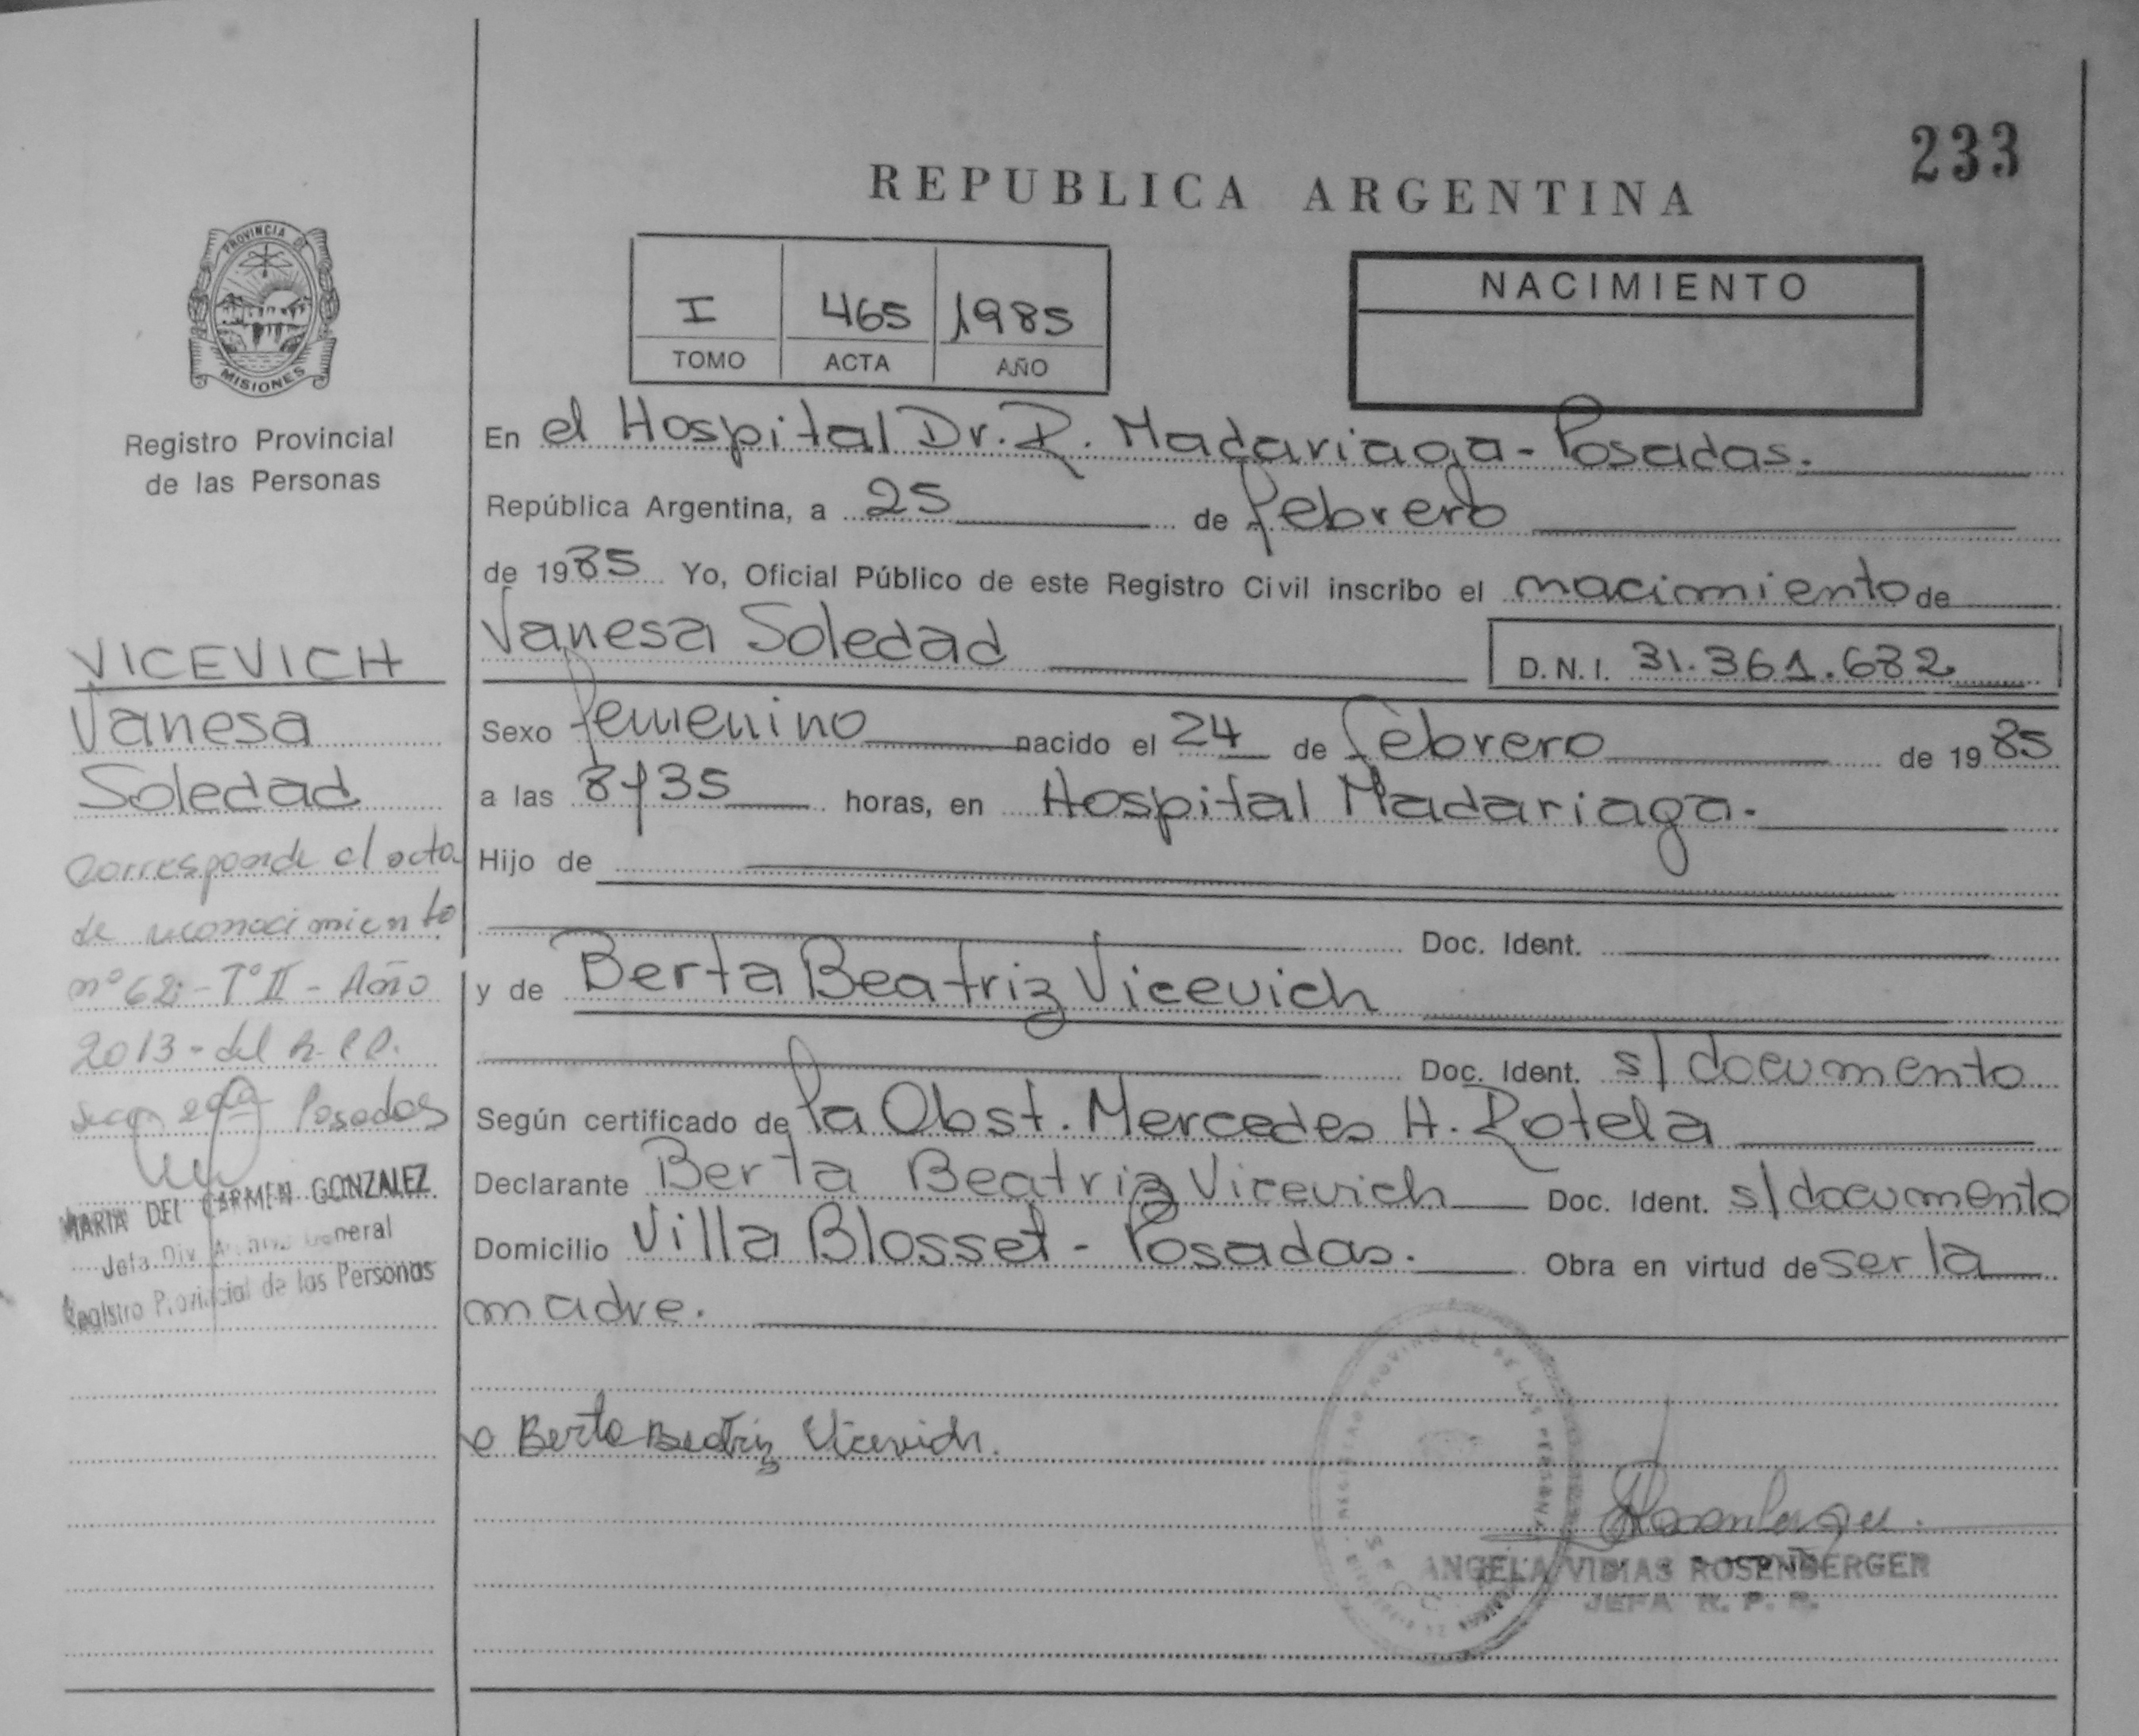 233
REPUBLICA ARGENTINA
PROVINCIA DE
MISIONES
Registro Provincial
de las Personas
I 465 1985
TOMO ACTA AÑO
NACIMIENTO
En el Hospital Dr. R. Madariaga - Posadas.
República Argentina, a 25 de febrero
de 1985 Yo, Oficial Público de este Registro Civil inscribo el nacimiento de
Vanesa Soledad D.N.I. 31.361.682
Sexo femenino nacido el 24 de febrero de 1985
a las 8y35 horas, en Hospital Madariaga.
Hijo de
Doc. Ident.
y de Berta Beatriz Vicevich
Doc. Ident. s/documento
Según certificado de la Obst. Mercedes H. Rotela
Declarante Berta Beatriz Vicevich Doc. Ident. s/documento
Domicilio Villa Blosset - Posadas. Obra en virtud de ser la
madre.
Berta Beatriz Vicevich.
ANGELA VIDIAS ROSENBERGER
JEFA R. P. P.
VICEVICH
Vanesa
Soledad
Corresponde el acta
de reconocimiento
nº 62 - Tº II - Año
2013 - del R.P.P.
Posadas
MARIA DEL CARMEN GONZALEZ
Jefa Div. General
Registro Provincial de las Personas